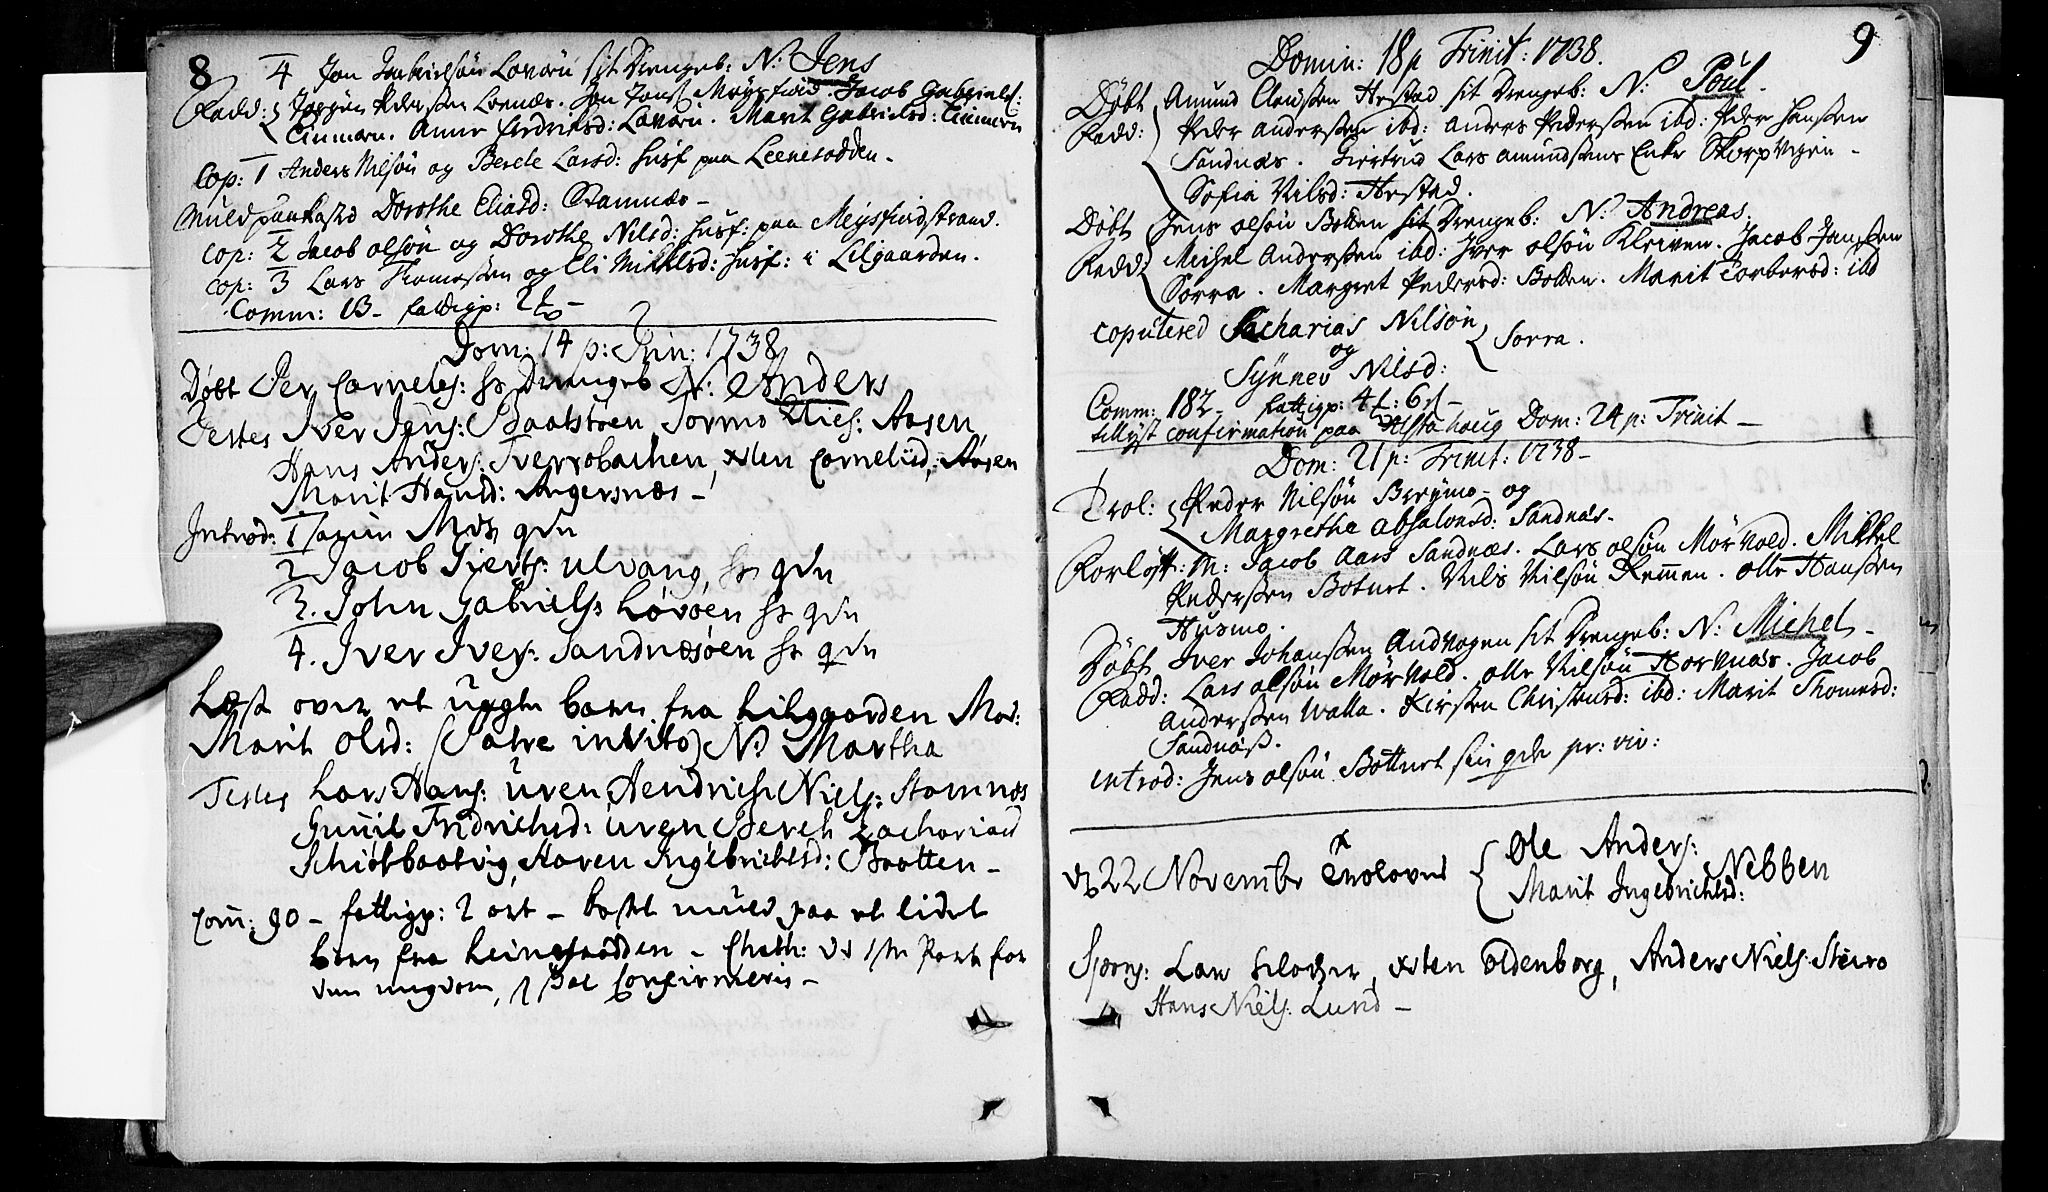 8
4 Jon Gabrielsøn Lovøen sit Drengeb: N: Jens
Fadd: Jørgen Pederssen Leenæs. Jon Jonss Meysfiord. Jacob Gabriels:
Einmoen. Anne Fredriksd: Lovøen. Marit Gabrielsd: Einmoen
Cop: 1 Anders Nilsøn og Berete Larsd: Husf paa Leenesodden.
Muld paakasted Dorothe Eliasd: Stamnæs –
cop: 2 Jacob olsøn og Dorothe Nilsd: Husf: paa Meysfiordstrand.
cop: 3 Lars Thomessen og Eli Mikkelsd: Husf: i Lilgaarden.
Comm: 13 – fattigp:
Dom: 14 p: Trin: 1738
Døbt Per Cornelis: ss Drengeb N: Anders
Testes Iver Jens: Baatstøen, Tormo Elies: Aasen
Hans Anders: Tverrobachen, xsten Cornelisd: Aasen
Marit Hansd: Angersnæs –
Introd: 1 Mds qvn
2 Jacob Gierts: ulvang, ss qvn
3. John Gabriels: Løvøen ss qvn
4. Iver Ivers: Sandnæsøen ss qvn
Læst over et uægte barn fra Lilgaarden Mod:
Marit Olsd: (Patre invito) N: Martha
Testes Lars Hans: uren, Hendrich Niels: Stamnæs
Gunil Fridrichsd: uren Bereth Zachariæd
Schiotbaatvig, Karen Ingebrichtsd: Braatten –
Com: 90 – fattigp: 2 ort – kastet muld paa et lidet
barn fra Leinesodden – Chath:
den ungdom, 1 Confirmeris –
9
Domin: 18 p Trinit: 1738.
Døbt Amund Claussen Hestad sit Drengeb: N: Poul.
Fadd: Peder Anderssen ibd: Anders Pederssen ibd: Peder Hanssen
Sandnæs. Giertrud Lars Amundsens Enke Skorpvigen –
Sofia Nilsd: Hestad.
Døbt Jens olsøn Botten sit Drengeb: N: Andreas.
Fadd: Michel Anderssen ibd: Iver olsøn Kleiven. Jacob Janssen
Sørra. Margret Pedersd: Botten. Marit Torbersd: ibd
copulered Sacharias Nilsøn
og Sørra.
Synnev Nilsd:
Comm: 182 – fattigp: 4 : 6 –
tillyst confirmation paa Alstahoug Dom: 24 p: Trinit –
Dom: 21 p: Trinit: 1738 –
Trol: Peder Nilsøn Breymo – og
Margrethe Absalonsd: Sandnæs.
Forløft: M: Jacob Aars Sandnæs. Lars olsøn Mørvold. Mikkel
Pederssen Botnet. Nils Nilsøn Remmen. olle Hanssen
Husmo.
Døbt Iver Johanssen Andvogen sit Drengeb: N: Michel –
Fadd: Lars olsøn Mørvold. olle Nilsøn Hornnæs. Jacob
Anderssen Walla. Kirsten Christensd: ibd: Marit Thomesd:
Sandnæss.
introd: Jens olsøn Bottnet sin qde pr: viv:
d 22 Novembr Trolovet Ole Anders:
Marit Ingebrichtsd: Nebben
Spons: Lars Klocher, xsten Oldenborg, Anders Niels: Steiro
Hans Niels: Lund –